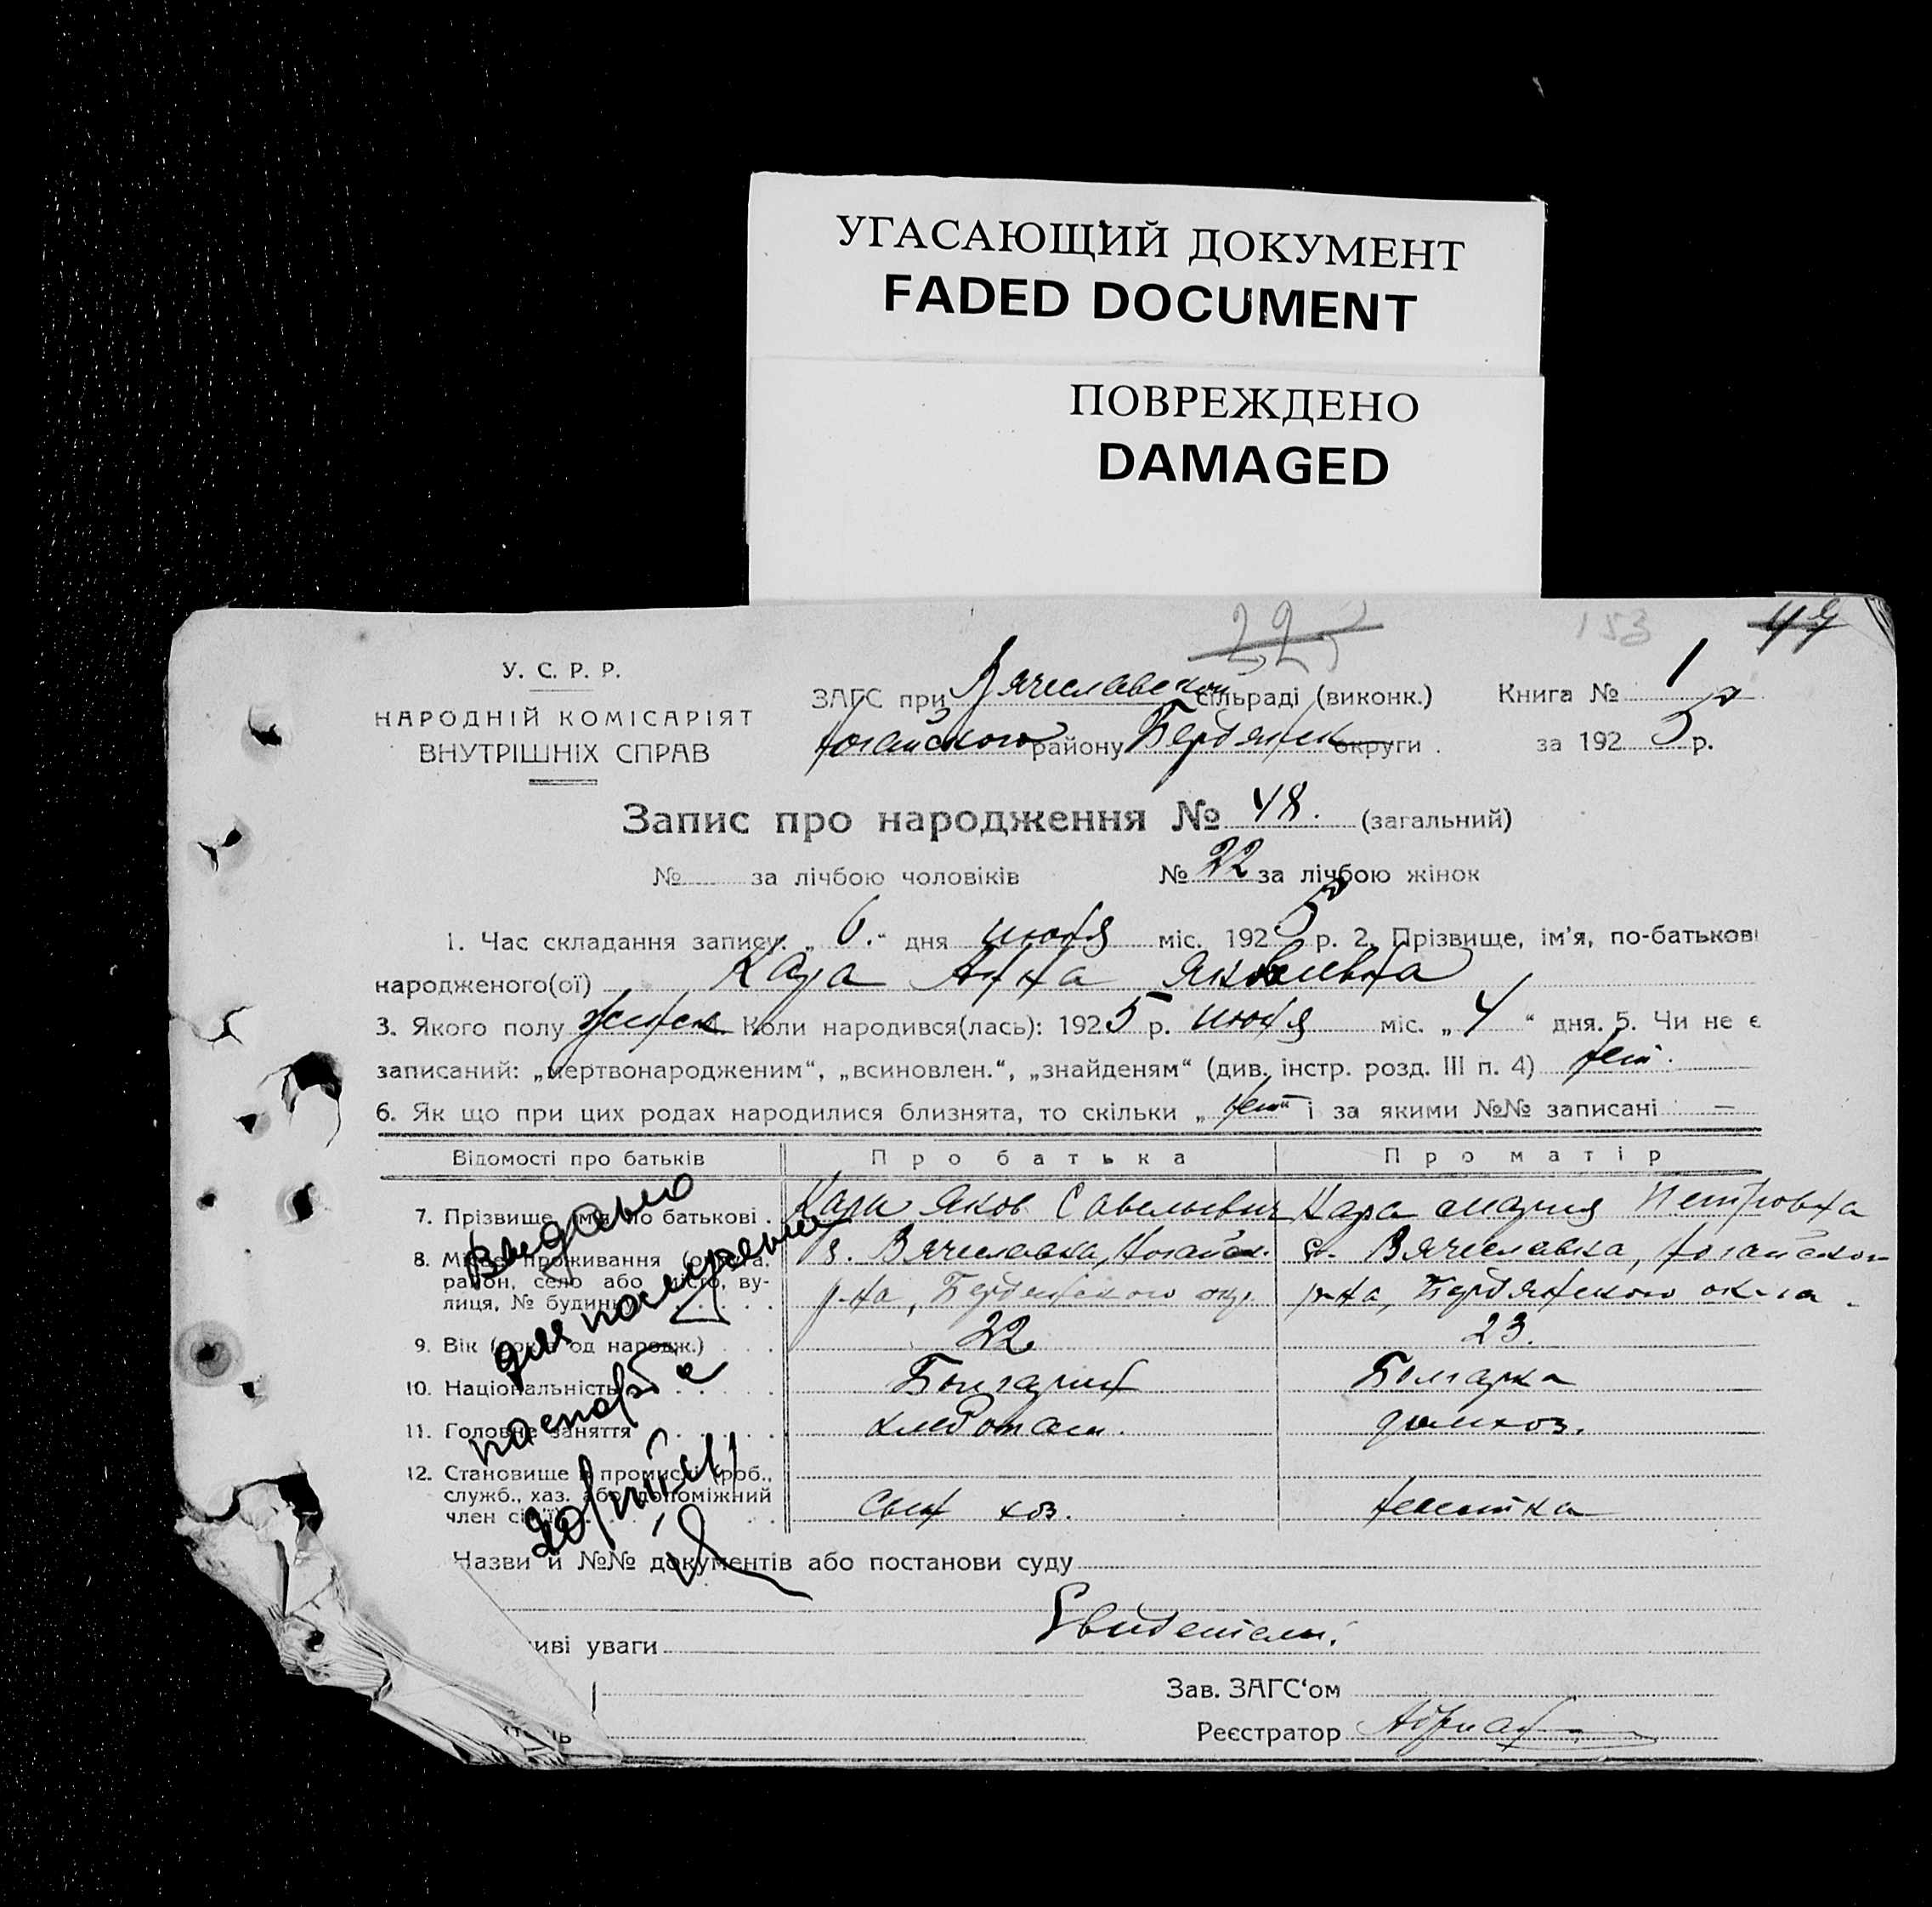 УГАСАЮЩИЙ ДОКУМЕНТ
FADED DOCUMENT
ПОВРЕЖДЕНО
DAMAGED
225 153 49
У. С. Р. Р.
НАРОДНІЙ КОМІСАРІЯТ
ВНУТРІШНІХ СПРАВ
ЗАГС при Вячеславской сільраді (виконк.) Книга № 1
Ногайского району Бердянск округи . за 1925 р.
Запис про народження № 48. (загальний)
№ за лічбою чоловіків № 22 за лічбою жінок
1. Час складання запису: „ 6. “ дня июня міс. 1925 р. 2. Прізвище, ім'я, по-батькові
народженого(ої) Кара Анна Яковлевна
3. Якого полу женск 4. Коли народився(лась): 1925 р. июня міс. „ 4 “ дня. 5. Чи не є
записаний: „мертвонародженим“, „всиновлен.“, „знайденям“ (див. інстр. розд. III п. 4) нет.
6. Як що при цих родах народилися близнята, то скільки „ нет “ і за якими №№ записані —
Відомості про батьків Про батька Про матір
7. Прізвище, ім'я по батькові . Кара Яков Савельевич Кара Мария Петровна
8. Місце проживання (округа, с. Вячеславка, Ногайск. с. Вячеславка, Ногайского
район, село або місто, ву- р-на, Бердянского окр. р-на, Бердянского
лиця, № будинку
9. Вік (років од народж.) 22 23.
10. Національність Болгарин Болгарка
11. Головне заняття хлебопаш. домхоз.
12. Становище в промислі (роб.,
служб., хаз. або допоміжний
член сім'ї) Сын хоз. невестка
Видано
для получения
паспорта
Назви й №№ документів або постанови суду
Свидетели.
иві уваги
Зав. ЗАГС'ом
Реєстратор